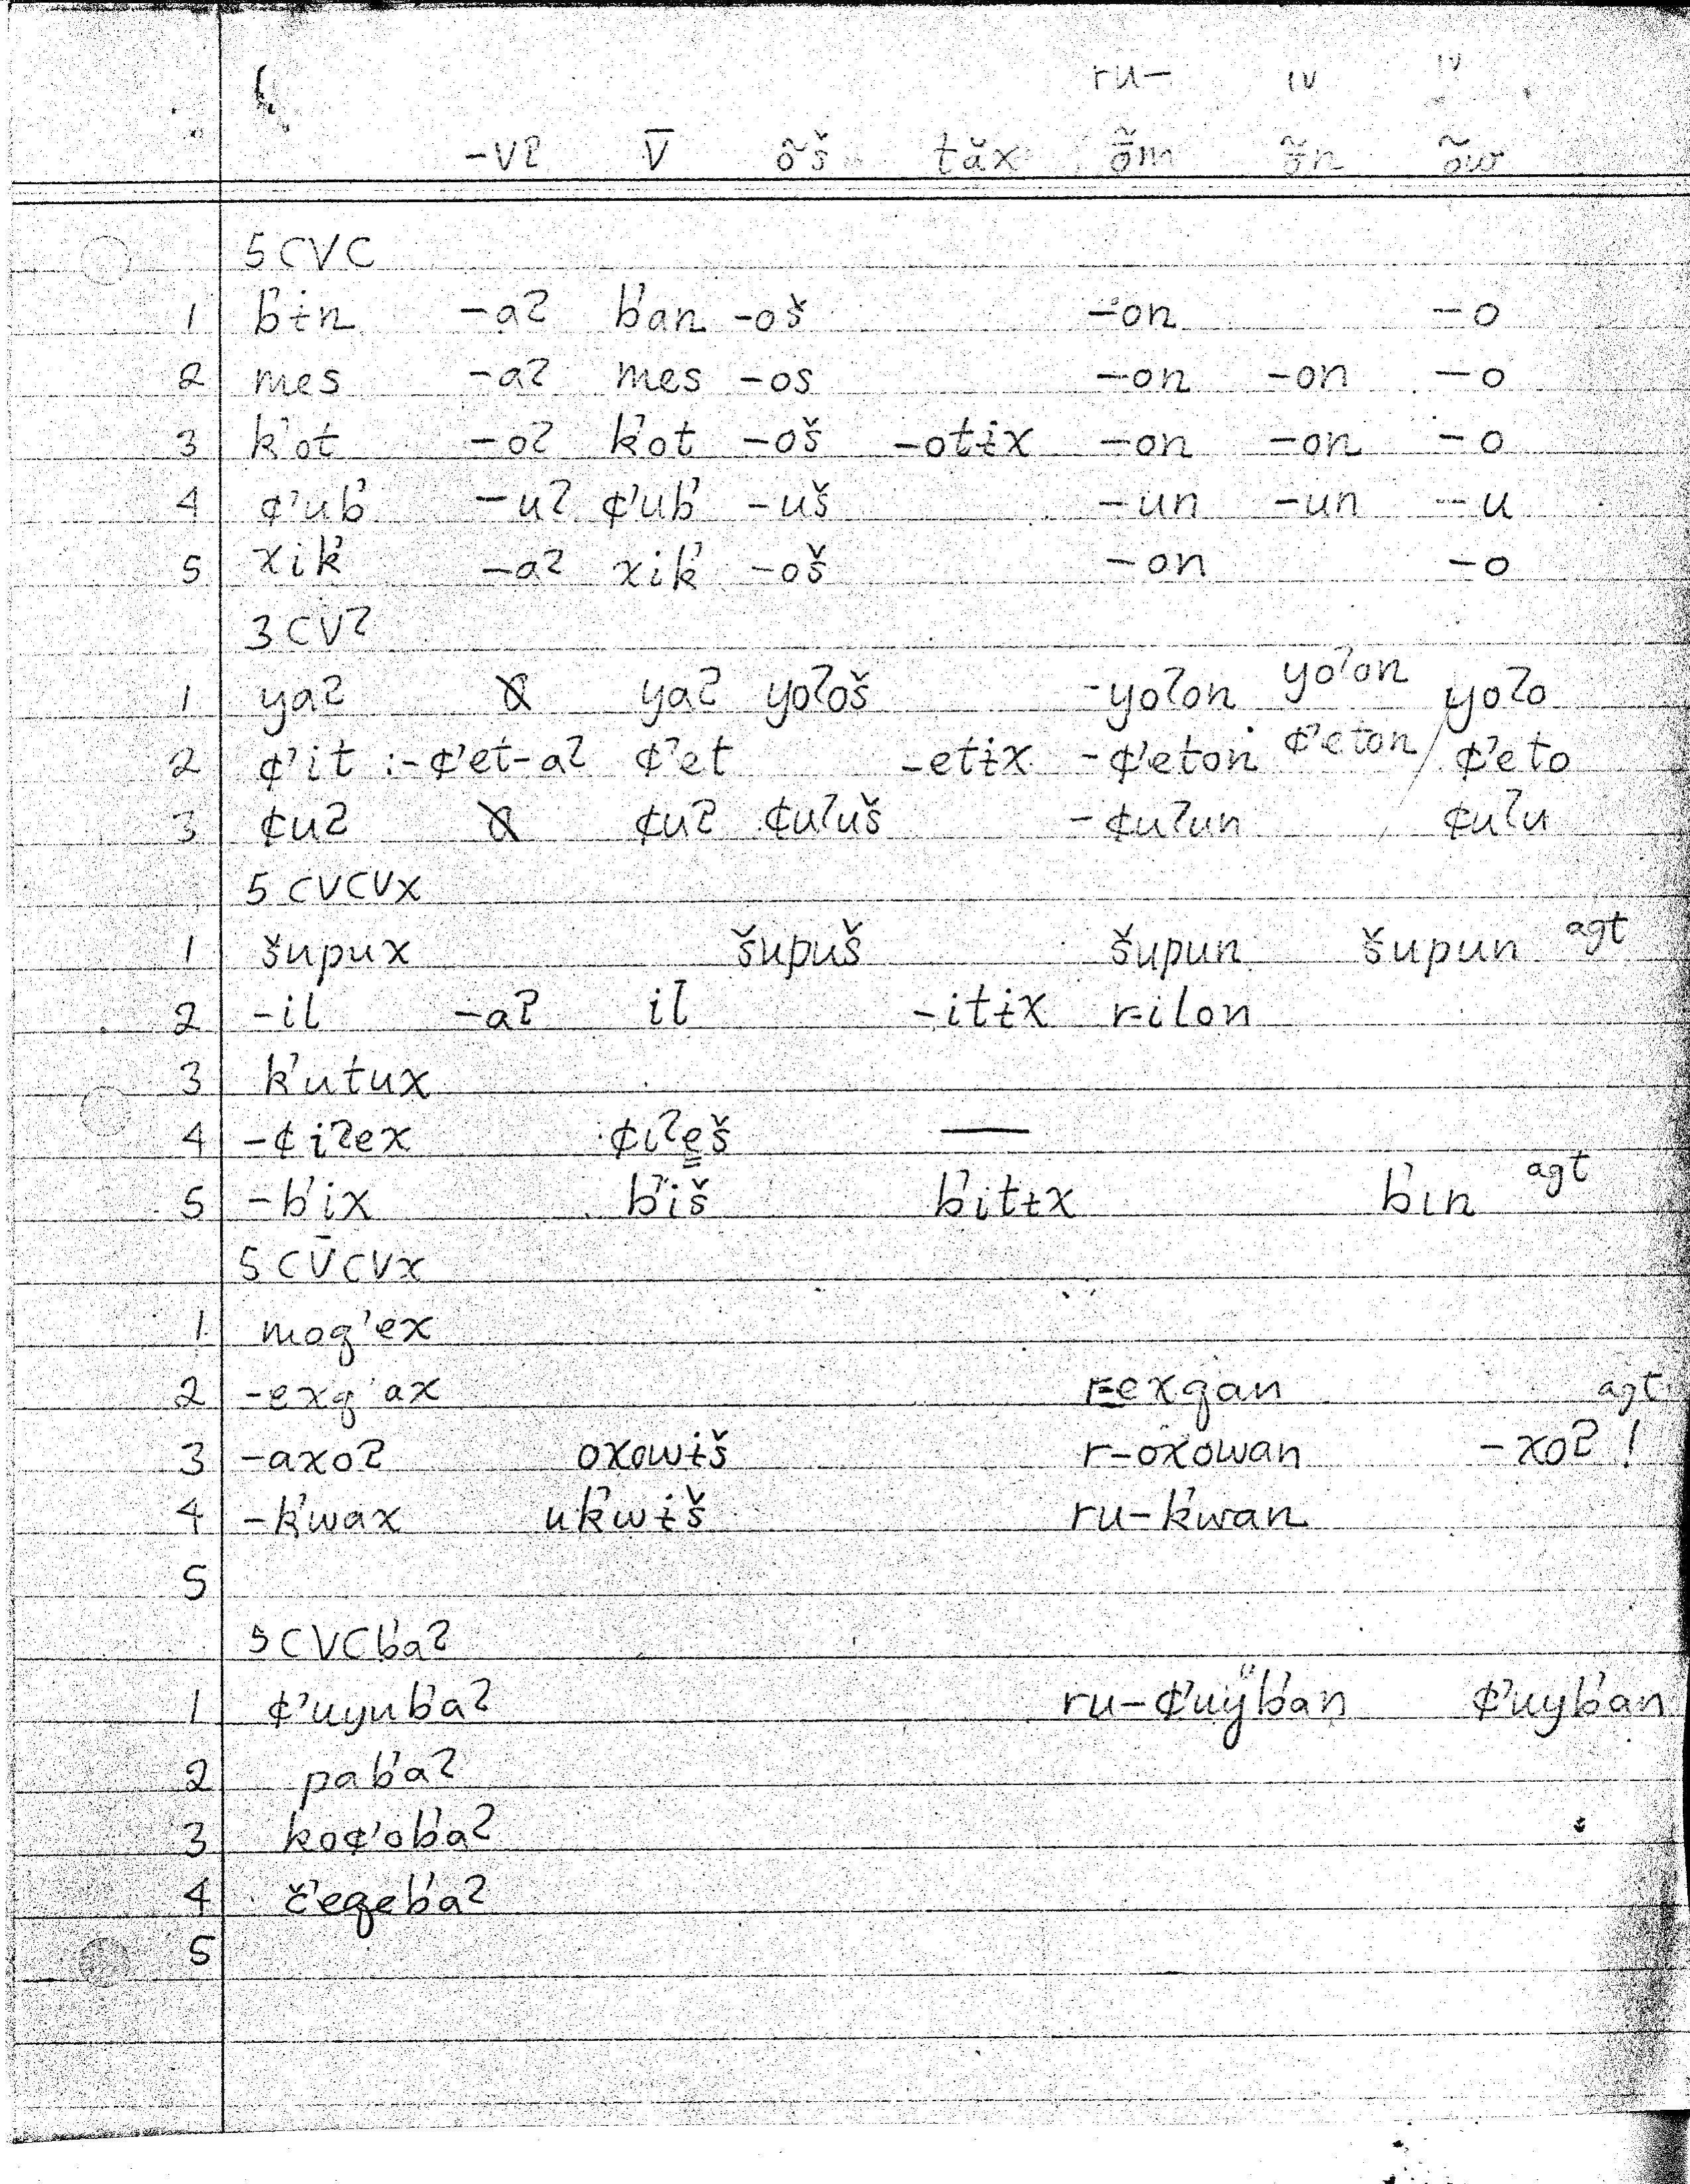 ru- ıv ıv
-vʔ v̄ õš tăx õ̆m õ̆n õw
5 CVC
1 b'ɨn -aʔ b'an -oš -on -o
2 mes -aʔ mes -os -on -on -o
3 k'ot -oʔ k'ot -oš -otɨx -on -on -o
4 ¢'ub' -uʔ ¢'ub' -uš -un -un -u
5 xik' -aʔ xik' -oš -on -o
3 CVʔ
1 yaʔ yaʔ yoʔoš -yoʔon yoʔon yoʔo
2 ¢'it :-¢'et-aʔ ¢'et -etɨx -¢'eton ¢'eton / ¢'eto
3 ¢uʔ ¢uʔ ¢uʔuš -¢uʔun ¢uʔu
5 CVCVx
1 šupux šupuš šupun šupun agt
2 -il -aʔ il -itɨx r-ilon
3 k'utux
4 -¢iʔex ¢ıʔeš —
5 -b'ix b'iš b'itɨx b'ın agt
5 CV̄CVx
1 moq'ex
2 -exq'ax r-exqan agt
3 -axoʔ oxowɨš r-oxowan -xoʔ !
4 -k'wax uk'wɨš ru-k'wan
5
5 CVCb'aʔ
1 ¢'uyub'aʔ ru-¢'uÿb'an ¢'uyb'an
2 pab'aʔ
3 ko¢'ob'aʔ
4 č'eqeb'aʔ
5